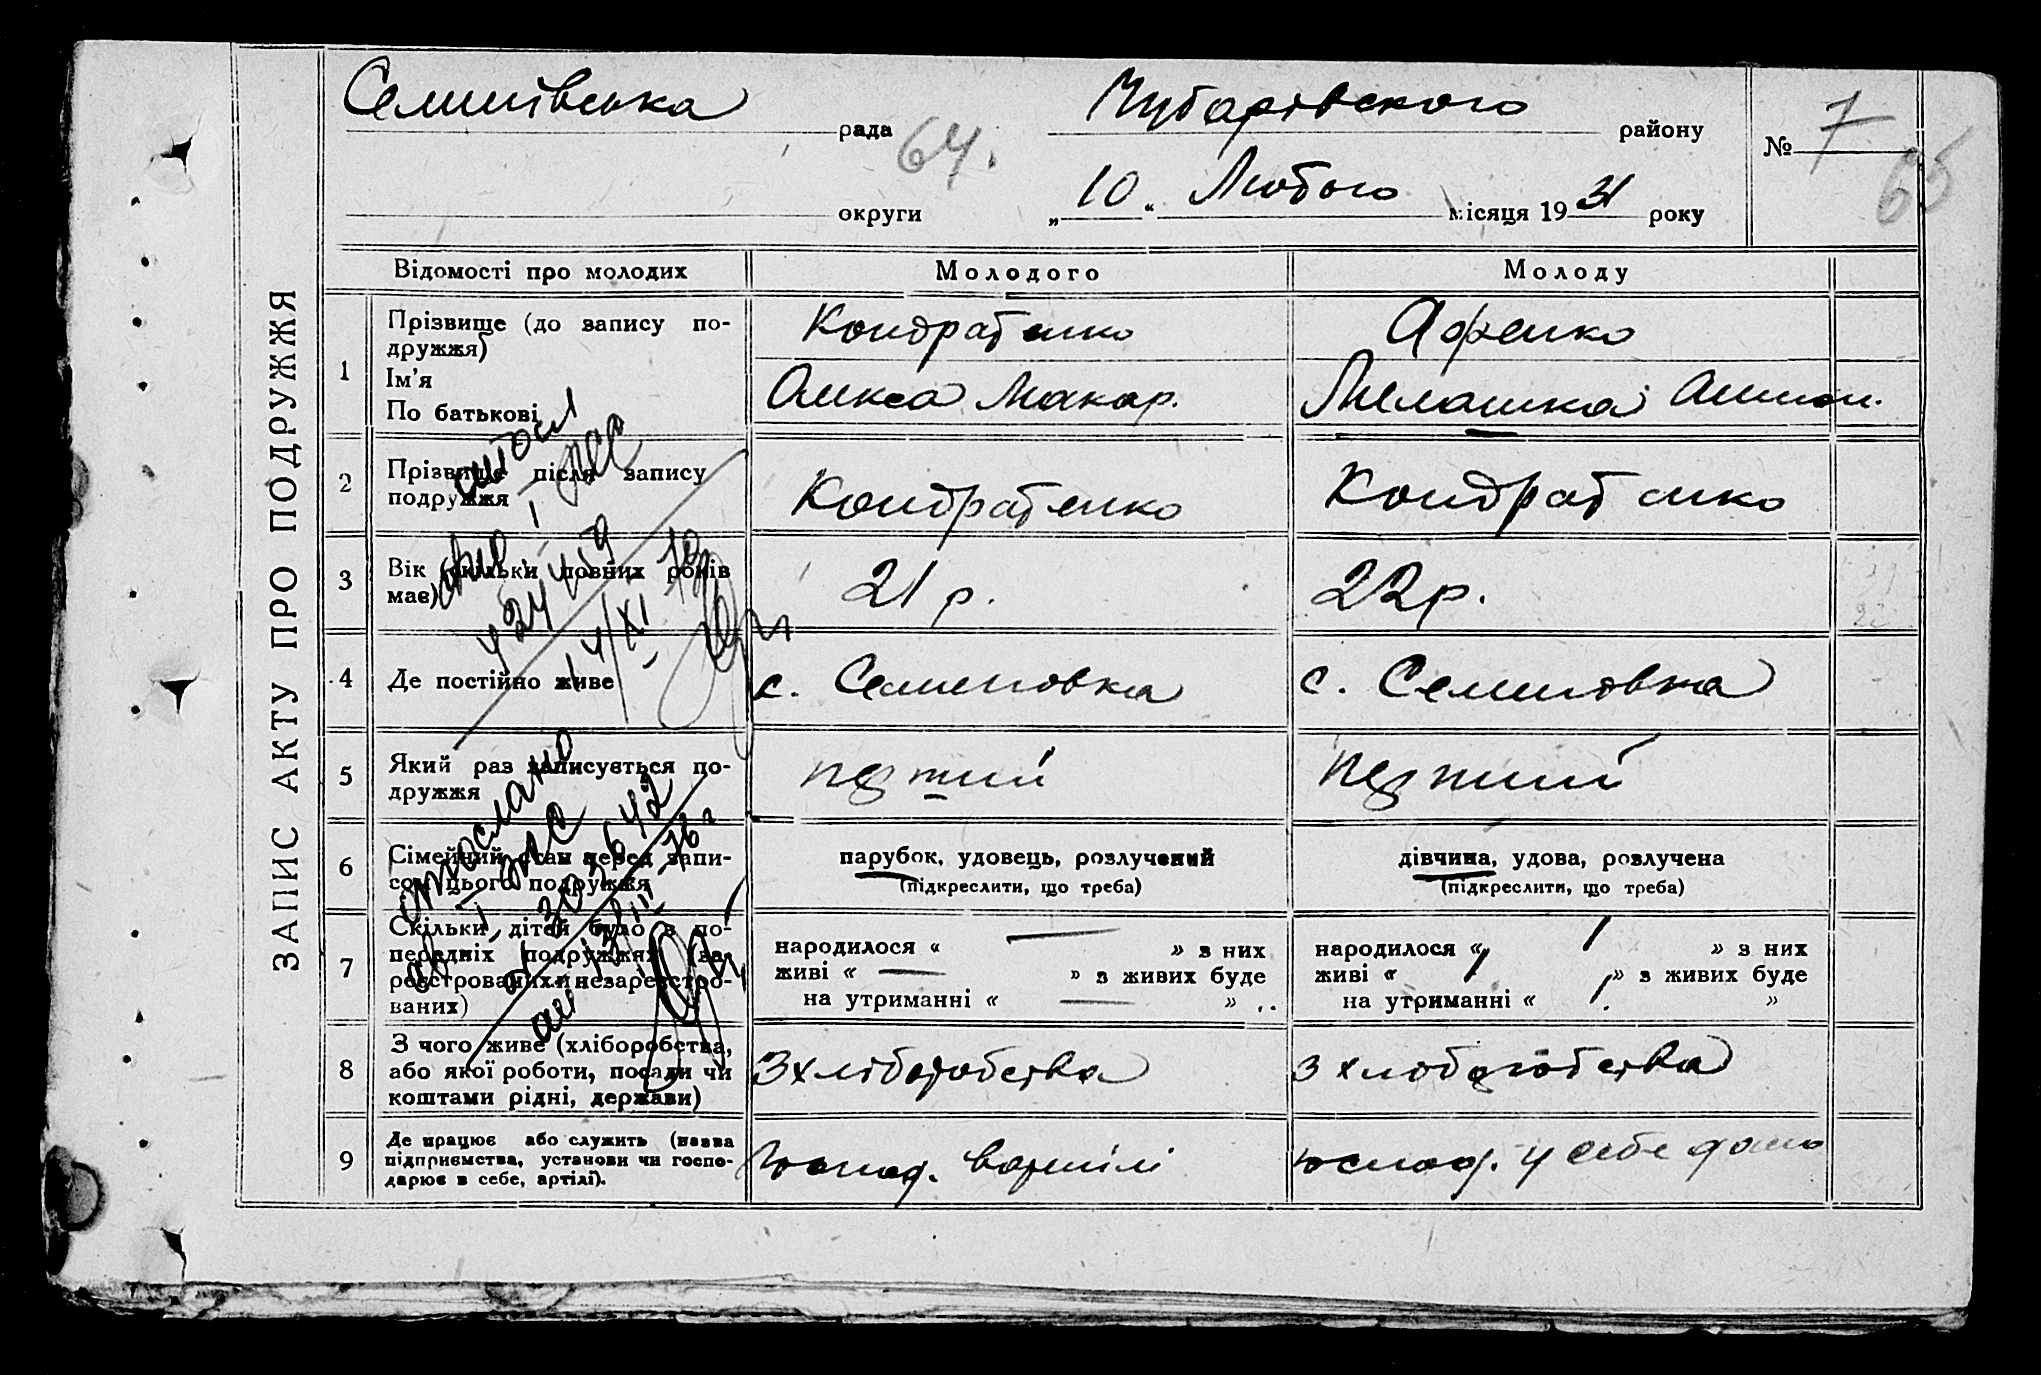 Семенівська рада
64.
Чубарівського району
№ 7
65
округи
„10“ Лютого місяця 1931 року
ЗАПИС АКТУ ПРО ПОДРУЖЖЯ
Відомості про молодих
Молодого
Молоду
1
Прізвище (до запису по-
дружжя)
Ім'я
По батькові
Кондратенко
Олекса Макар.
Мелашка
2
Прізвище після запису
подружжя
Кондратенко
Кондратенко
3
Вік (скільки повних років
має)
21 р.
22 р.
4
Де постійно живе
с. Семеновка
с. Семеновка
5
Який раз записується по-
дружжя
перший
перший
6
Сімейний стан перед запи-
сом цього подружжя
парубок, удовець, розлучений
(підкреслити, що треба)
дівчина, удова, розлучена
(підкреслити, що треба)
7
Скільки дітей було в по-
передніх подружжях (за-
реєстрованих и незареєстро-
ваних)
народилося « — » з них
живі « — » з живих буде
на утриманні « — »
народилося « » з них
живі « » з живих буде
на утриманні « »
8
З чого живе (хліборобства,
або якої роботи, посади чи
коштами рідні, держави)
З хліборобства
З хлоборобства
9
Де працює або служить (назва
підприємства, установи чи госпо-
дарює в себе, артілі).
господ. в артілі
господ. у себе дома
отослано